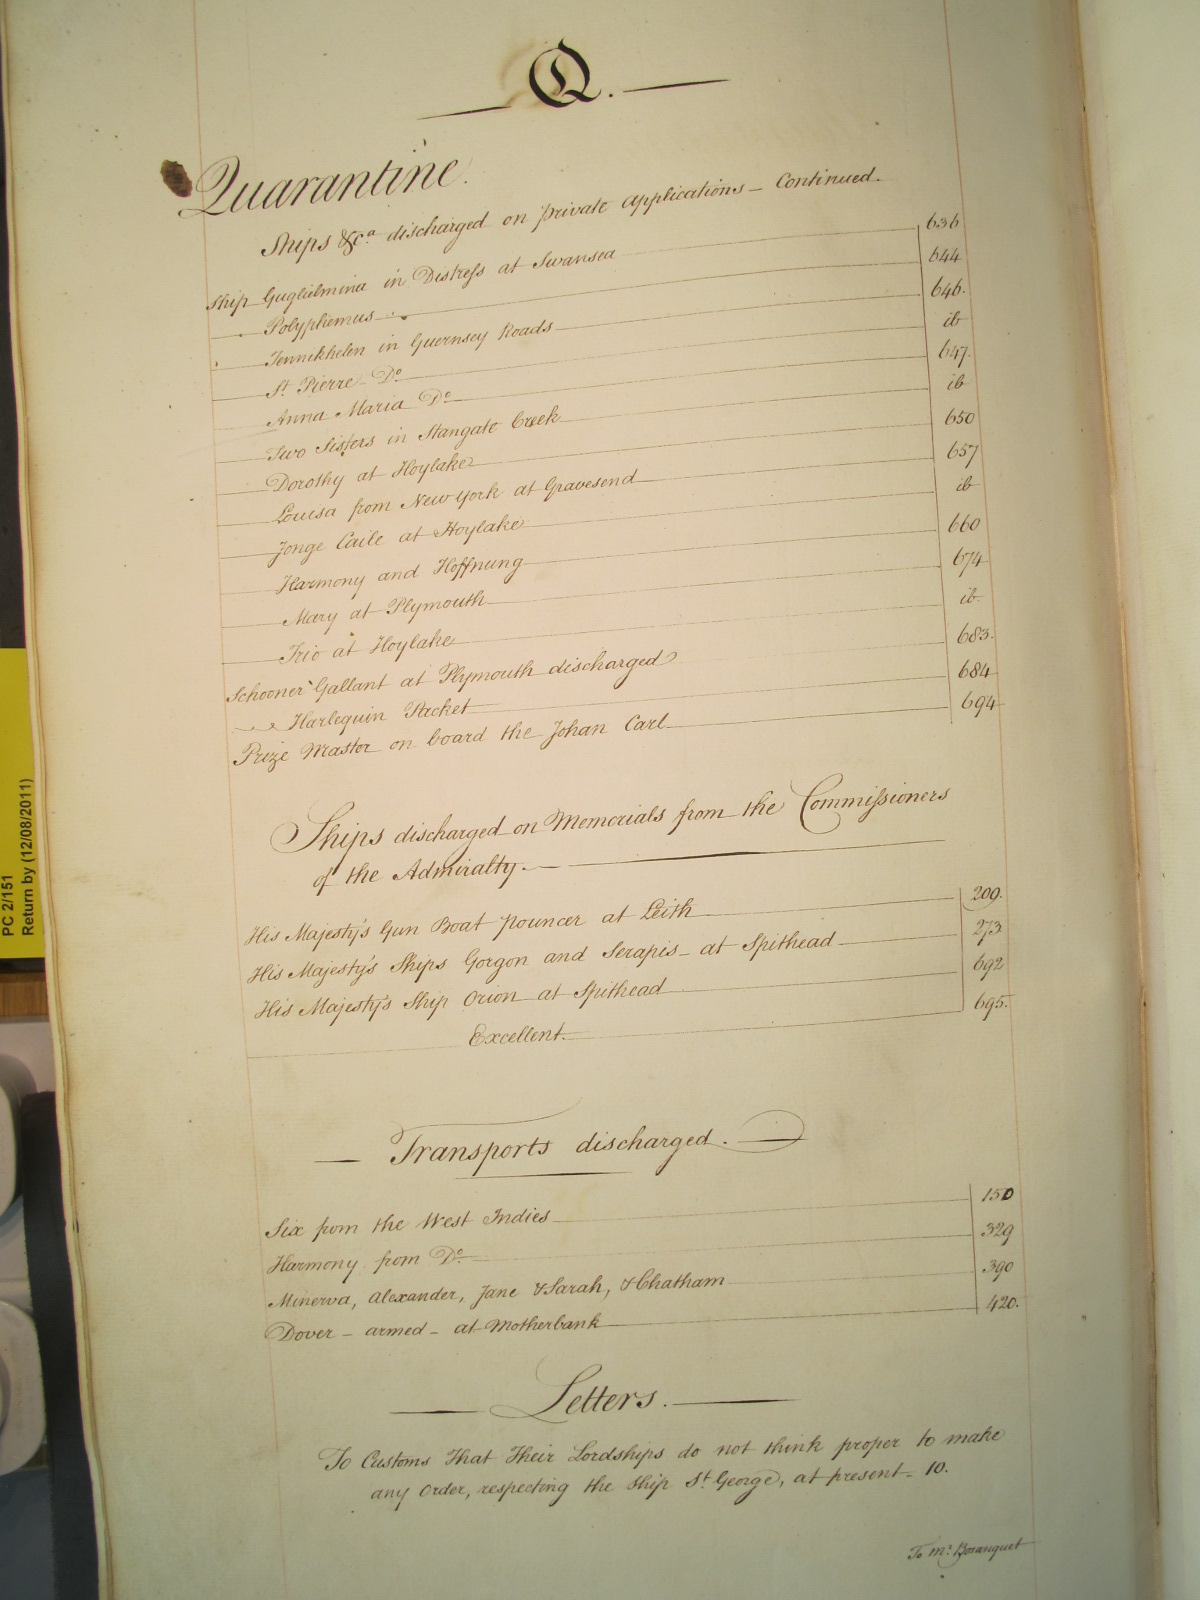 Q.
Quarantine.
Ships &c.a discharged on private applications – Continued.
Ship Guglielmina in Distress at Swansea 636
Polyphemus 644
Jennikhelen in Guernsey Roads 646.
St. Pierre Do ib
Anna Maria Do 647.
Two Sisters in Stangate Creek ib
Dorothy at Hoylake 650
Louisa from New York at Gravesend 657
Jonge Caile at Hoylake ib
Harmony and Hoffnung 660
Mary at Plymouth 674
Trio at Hoylake ib.
Schooner Gallant at Plymouth discharged 683.
Harlequin Packet 684
Prize Master on board the Johan Carl 694
Ships discharged on Memorials from the Commissioners
of the Admiralty.
His Majesty's Gun Boat Pouncer at Leith 209.
His Majesty's Ships Gorgon and Serapis – at Spithead 273
His Majesty's Ship Orion at Spithead 692
Excellent. 695.
Transports discharged.
Six from the West Indies 150
Harmony from Do. 329
Minerva, Alexander, Jane & Sarah, & Chatham 390
Dover – armed – at Motherbank 420.
Letters.
To Customs That Their Lordships do not think proper to make
any Order, respecting the Ship St. George, at present – 10.
To Mr. Bosanquet
PC 2/151
Return by (12/08/2011)